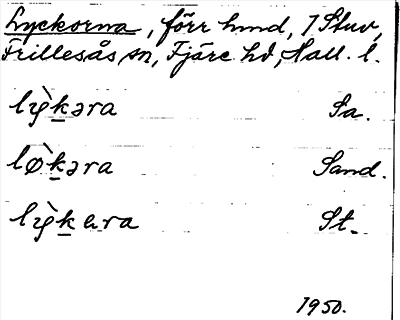 Lyckorna, förr hmd, 7 Stuv,
Frillesås sn, Fjäre hd, Hall. l.
lỳkəra Sa.
lø̀kəra Sand.
lỳkɐra St.
1950.